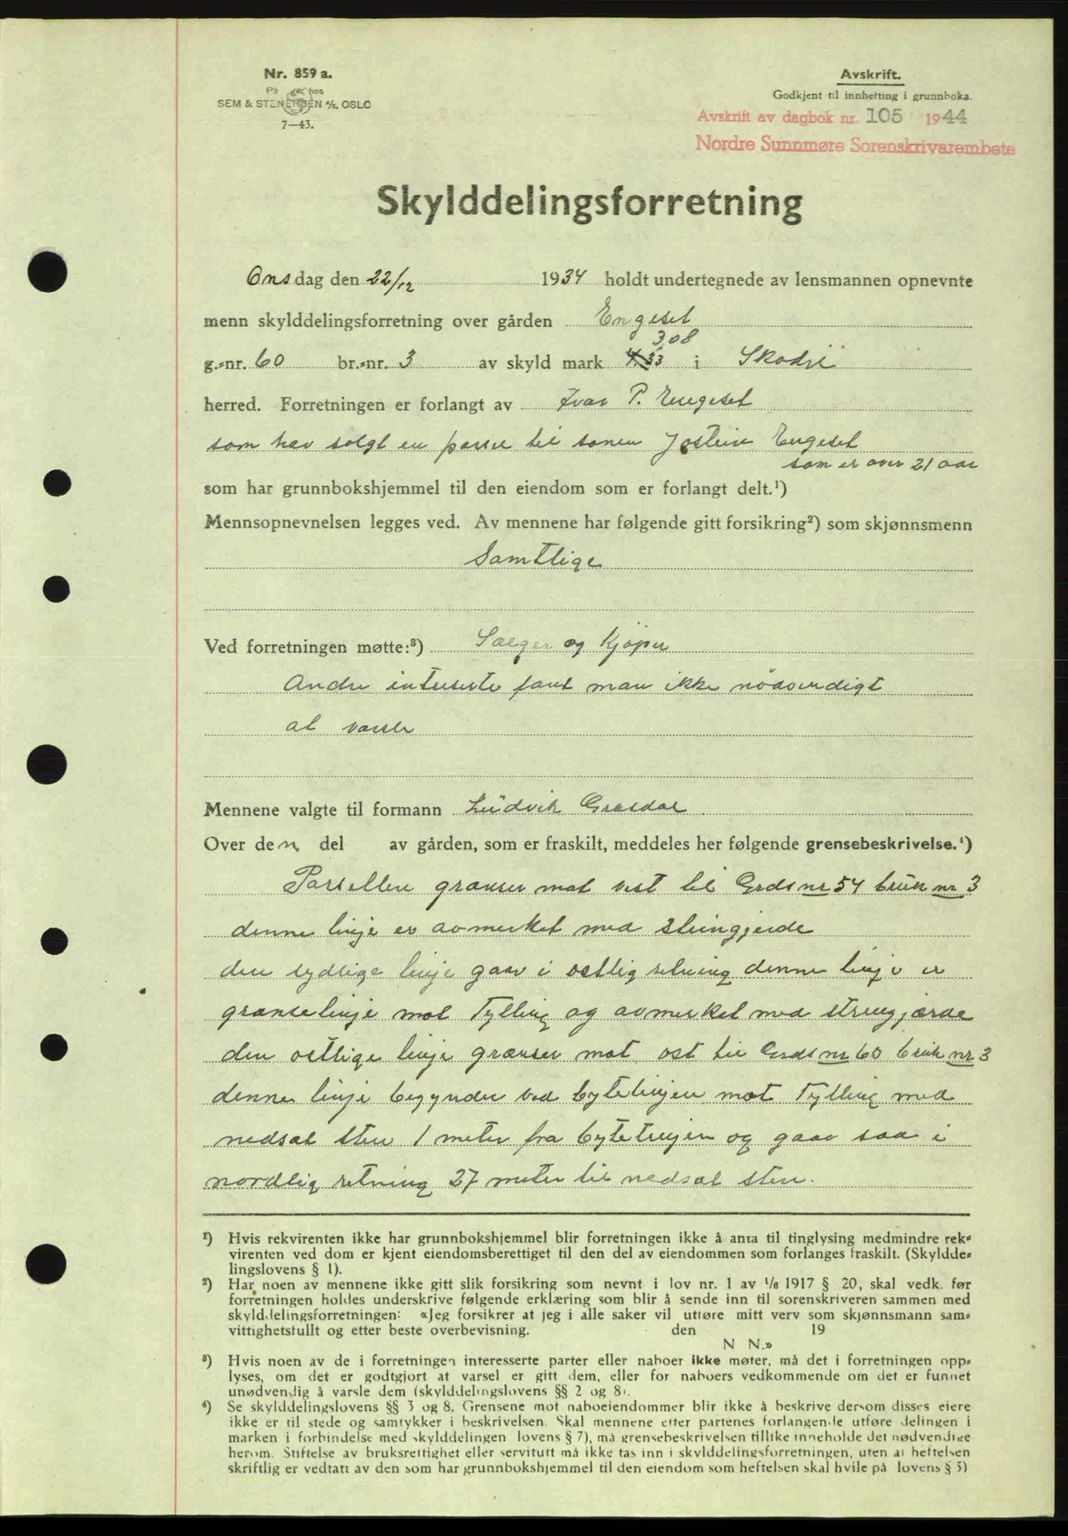 Nr. 859 a.
På hos
SEM & STENERSEN A/S, OSLO
7—43.
Avskrift.
Godkjent til innhefting i grunnboka.
Avskrift av dagbok nr. 105 1944
Nordre Sunnmøre Sorenskrivarembete
Skylddelingsforretning
Onsdag den 22/12 1934 holdt undertegnede av lensmannen opnevnte
menn skylddelingsforretning over gården Engeset
3,08
g.-nr. 60 br.-nr. 3 av skyld mark i Skodje
herred. Forretningen er forlangt av Ivar P. Engeset
som har solgt en parsel til sønen Jostein Engeset
som er over 21 aar
som har grunnbokshjemmel til den eiendom som er forlangt delt.¹)
Mennsopnevnelsen legges ved. Av mennene har følgende gitt forsikring²) som skjønnsmenn
Samtlige
Ved forretningen møtte:³) Sælger og Kjøper
Andre interserte fant man ikke nødvendigt
at varsle
Mennene valgte til formann Ludvik Grasdal
Over den del av gården, som er fraskilt, meddeles her følgende grensebeskrivelse.⁴)
Parsellen grænser mot vest til Grds nr 54 bruk nr 3
denne linje er avmerket med steingjerde
den sydlige linje gaar i østlig retning denne linje er
grænselinje mot Tylling og avmerket med steingjærde
den østlige linje grænser mot øst til Grds nr 60 bruk nr 3
denne linje begynder ved bytelinjen mot Tylling med
nedsat sten 1 meter fra bytelinjen og gaar saa i
nordlig retning 27 meter til nedsat sten.
¹) Hvis rekvirenten ikke har grunnbokshjemmel blir forretningen ikke å anta til tinglysing medmindre rek-
virenten ved dom er kjent eiendomsberettiget til den del av eiendommen som forlanges fraskilt. (Skyldde-
lingslovens § 1).
²) Har noen av mennene ikke gitt slik forsikring som nevnt i lov nr. 1 av 1/6 1917 § 20, skal vedk. før
forretningen holdes underskrive følgende erklæring som blir å sende inn til sorenskriveren sammen med
skylddelingsforretningen: «Jeg forsikrer at jeg i alle saker vil utføre mitt verv som skjønnsmann sam-
vittighetsfullt og etter beste overbevisning. den 19
N N.»
³) Hvis noen av de i forretningen interesserte parter eller naboer ikke møter, må det i forretningen opp-
lyses, om det er godtgjort at varsel er gitt dem, eller for naboers vedkommende om det er funnet
unødvendig å varsle dem (skylddelingslovens §§ 2 og 8).
⁴) Se skylddelingslovens §§ 3 og 8. Grensene mot naboeiendommer blir ikke å beskrive dersom disses eiere
ikke er til stede og samtykker i beskrivelsen. Skal mennene etter partenes forlangende utføre delingen i
marken i forbindelse med skylddelingen lovens § 7), må grensebeskrivelsen tillike inneholde det nødvendige
herom. Stiftelse av bruksrettighet eller servitutt må ikke tas inn i skylddelingsforretningen, uten at heftelsen
skriftlig er vedtatt av den som har grunnbokshjemmel til den eiendom som heftelsen skal hvile på lovens § 5)